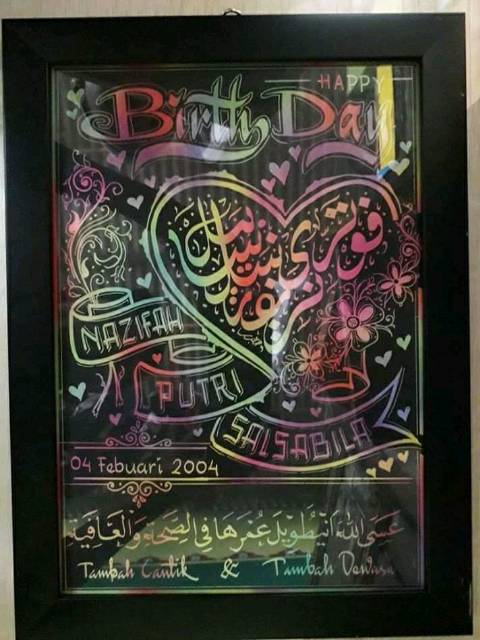 HAPPY
Birth Day
فوتري
NAZIFAH
PUTRI
SALSABILA
04 Febuari 2004
عَسَى اللهُ اَنْ يُطَوِّيلَ عُمْرَهَا فِي الصِّحَةِ وَالْعَافِيَةِ
Tambah Cantik & Tambah Dewasa